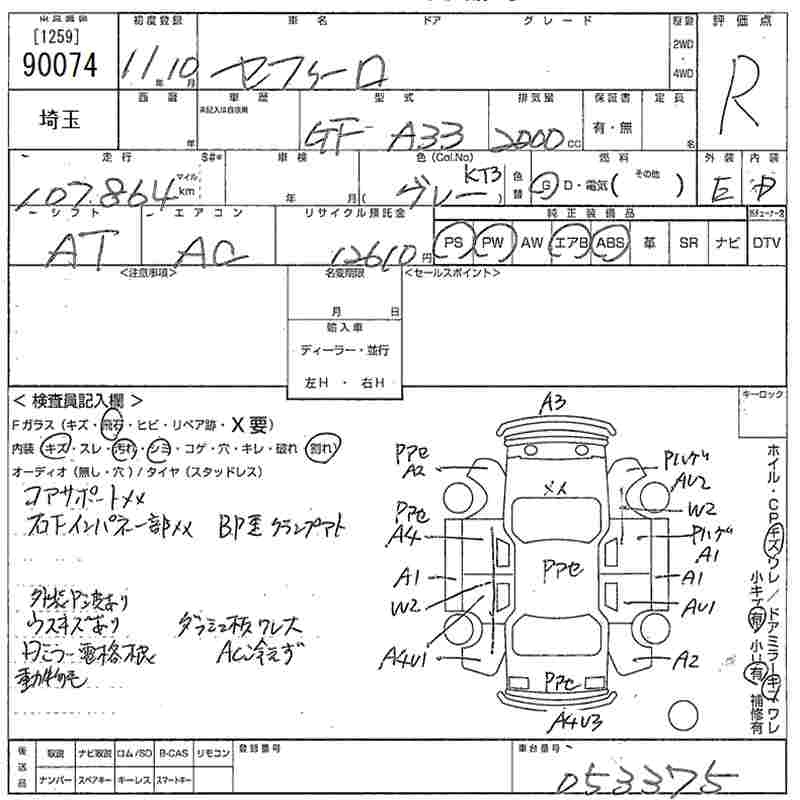 [1259]
90074
初度登録
車名 ドア グレード
駆動
2WD
4WD
評価点
11年10月
セフィーロ
R
埼玉
西暦
年
車歴
未記入は自家用
型式
GF- A33
排気量
2000cc
保証書
有・無
定員
名
走行
107,864
マイル
km
S#*
車検
年 月
色(Cal.No)
グレー KT3
色替
燃料
G D・電気( その他 )
外装
E
内装
シフト
AT
エアコン
AC
リサイクル預託金
12610円
純正装備品
PS PW AW エアB ABS 革 SR ナビ DTV
<注意事項>
名変期限
月 日
<セールスポイント>
輸入車
ディーラー・並行
左H ・ 右H
< 検査員記入欄 >
キーロック
Fガラス(キズ・飛石・ヒビ・リペア跡・X要)
内装(キズ・スレ・汚れ・シミ・コゲ・穴・キレ・破れ 割れ)
オーディオ(無し・穴)/タイヤ(スタッドレス)
コアサポートメメ
右下インパネ一部メメ
外装P波あり
ウスキズあり
ダッシュ板ワレ大
AC冷えず
動物毛
A3
A2
メメ
Pハゲ
AU2
W2
A4
Pハゲ
A1
A1
A1
W2
AU1
A4U1
A2
A4U3
ホイル・CPキズワレ/ドアミラーキズワレ
小キズ有 小U有 補修有
後送品
取説 ナビ取説 ロム/SD B-CAS リモコン
ナンバー スペアキー キーレス スマートキー
登録番号
車台番号
053375